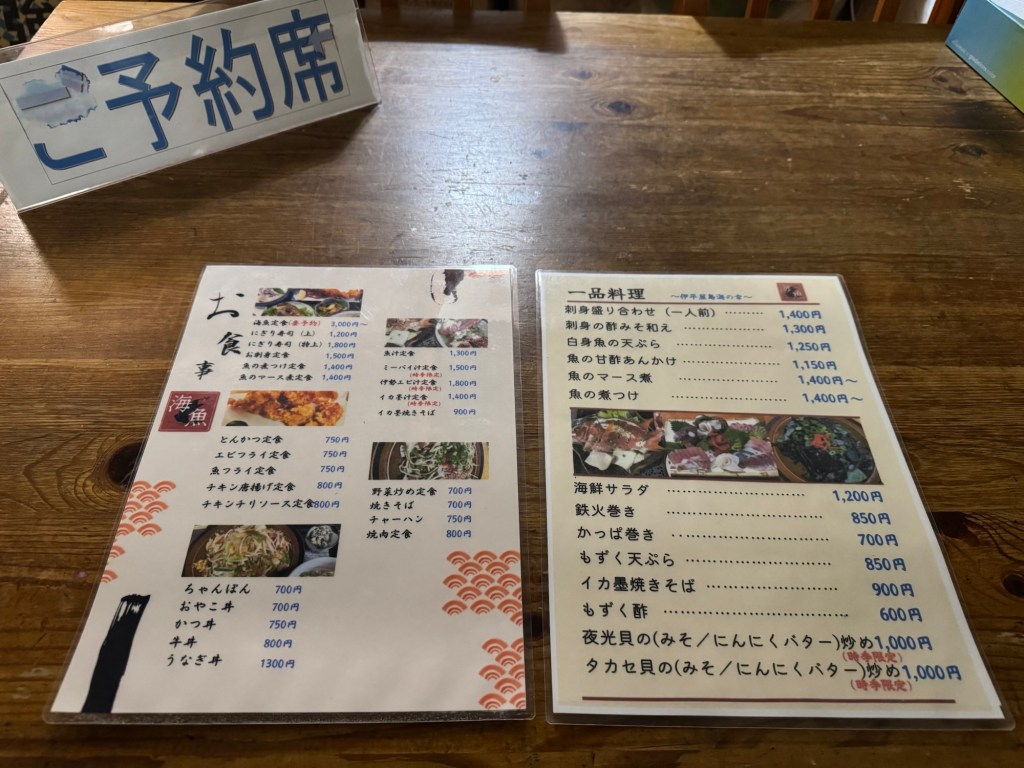 ご予約席
お食事
海魚定食(要予約) 3,000円～
にぎり寿司(上) 1,200円
にぎり寿司(特上) 1,800円
お刺身定食 1,500円
魚の煮つけ定食 1,400円
魚のマース煮定食 1,400円
魚汁定食 1,300円
ミーバイ汁定食 1,500円
(時季限定)
伊勢エビ汁定食 1,800円
(時季限定)
イカ墨汁定食 1,400円
(時季限定)
イカ墨焼きそば 900円
海魚
とんかつ定食 750円
エビフライ定食 750円
魚フライ定食 750円
チキン唐揚げ定食 800円
チキンチリソース定食 800円
野菜炒め定食 700円
焼きそば 700円
チャーハン 750円
焼肉定食 800円
ちゃんぽん 700円
おやこ丼 700円
かつ丼 750円
牛丼 800円
うなぎ丼 1300円
一品料理 ～伊平屋島海の幸～
刺身盛り合わせ (一人前) ……… 1,400円
刺身の酢みそ和え ………… 1,300円
白身魚の天ぷら ………… 1,250円
魚の甘酢あんかけ ………… 1,150円
魚のマース煮 ………… 1,400円～
魚の煮つけ ………… 1,400円～
海鮮サラダ ………… 1,200円
鉄火巻き ………… 850円
かっぱ巻き ………… 700円
もずく天ぷら ………… 850円
イカ墨焼きそば ………… 900円
もずく酢 ………… 600円
夜光貝の(みそ／にんにくバター)炒め 1,000円
(時季限定)
タカセ貝の(みそ／にんにくバター)炒め 1,000円
(時季限定)